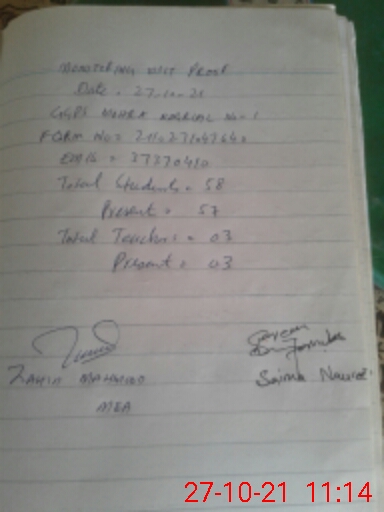 MONITORING VISIT PROOF
Date = 27-10-21
GGPS MOHRA No 1
FORM No =
EMIS = 37370410
Total Students = 58
Present = 57
Total Teachers = 03
Present = 03
ZAHID MAHMOOD
MEA
Saima
27-10-21 11:14